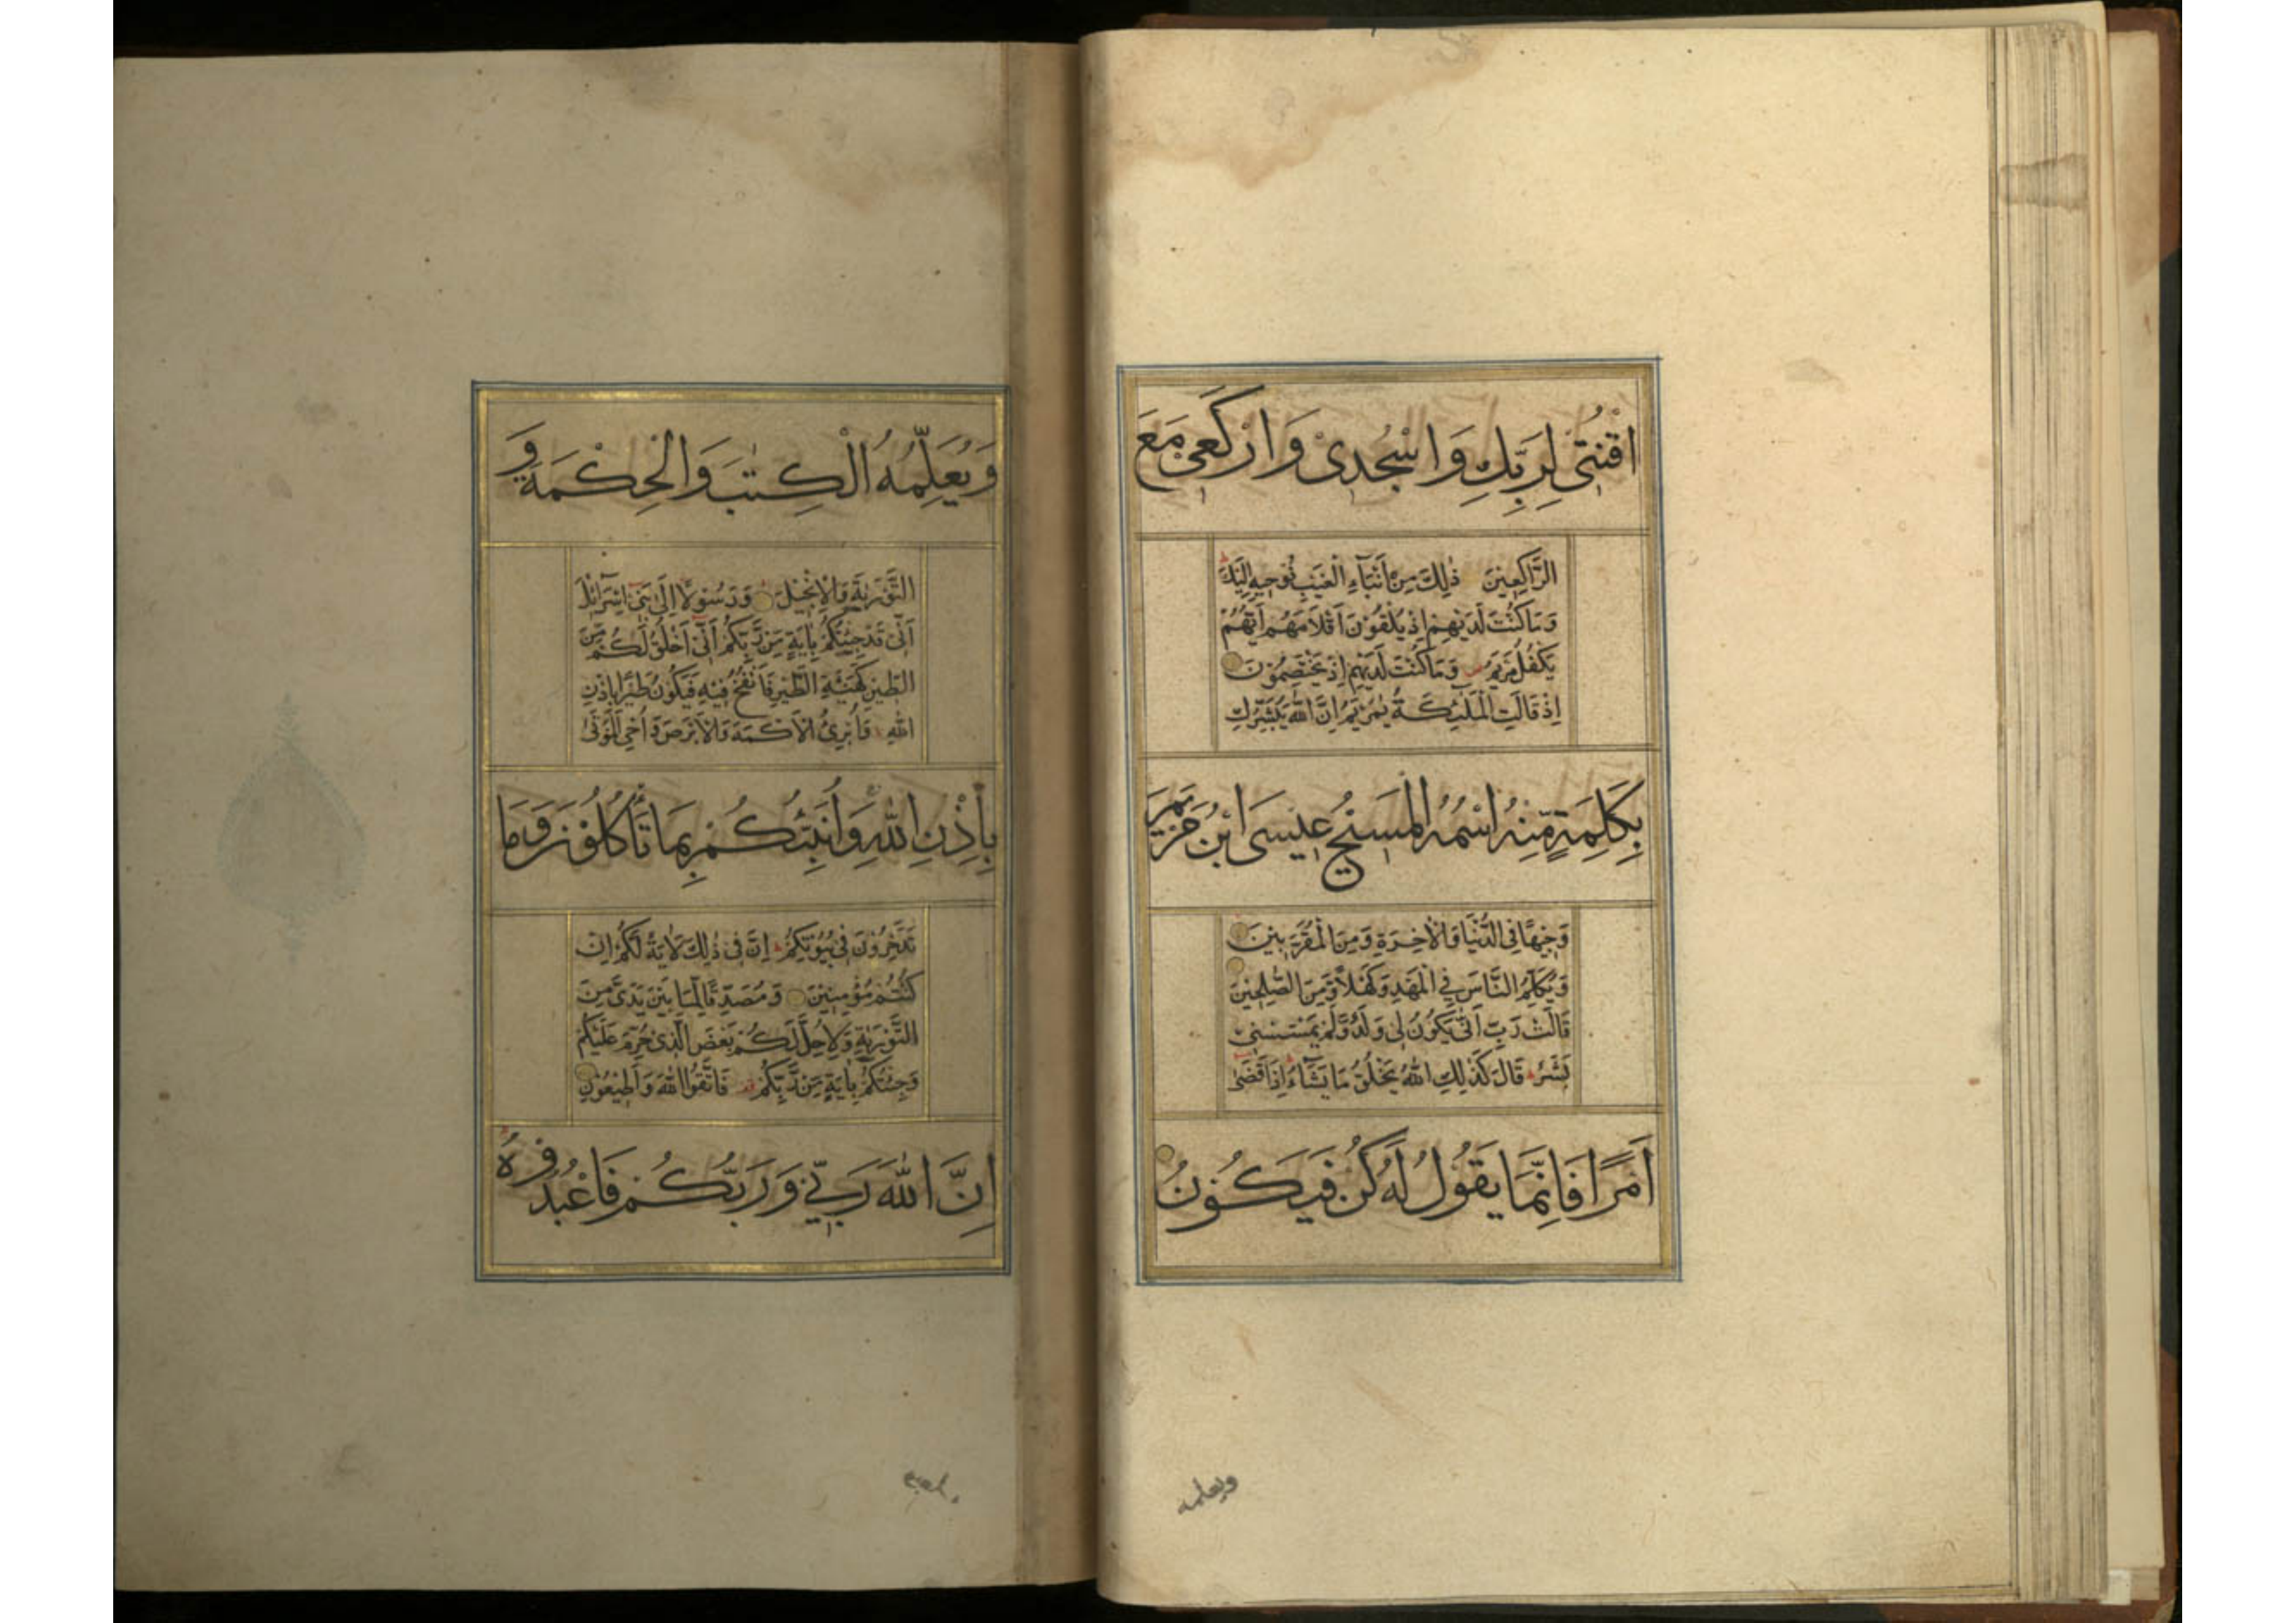 اقْنُتِىْ لِرَبِّكِ وَاسْجُدِىْ وَارْكَعِىْ مَعَ
الرَّاكِعِيْنَ ذٰلِكَ مِنْ اَنْبَآءِ الْغَيْبِ نُوْحِيْهِ اِلَيْكَ
وَمَا كُنْتَ لَدَيْهِمْ اِذْ يُلْقُوْنَ اَقْلَامَهُمْ اَيُّهُمْ
يَكْفُلُ مَرْيَمَ وَمَا كُنْتَ لَدَيْهِمْ اِذْ يَخْتَصِمُوْنَ
اِذْ قَالَتِ الْمَلٰٓئِكَةُ يٰمَرْيَمُ اِنَّ اللّٰهَ يُبَشِّرُكِ
بِكَلِمَةٍ مِّنْهُ اسْمُهُ الْمَسِيْحُ عِيْسَى ابْنُ مَرْيَمَ
وَجِيْهًا فِى الدُّنْيَا وَالْاٰخِرَةِ وَمِنَ الْمُقَرَّبِيْنَ
وَيُكَلِّمُ النَّاسَ فِى الْمَهْدِ وَكَهْلًا وَّمِنَ الصّٰلِحِيْنَ
قَالَتْ رَبِّ اَنّٰى يَكُوْنُ لِىْ وَلَدٌ وَّلَمْ يَمْسَسْنِىْ
بَشَرٌ قَالَ كَذٰلِكِ اللّٰهُ يَخْلُقُ مَا يَشَآءُ اِذَا قَضٰى
اَمْرًا فَاِنَّمَا يَقُوْلُ لَهٗ كُنْ فَيَكُوْنُ
ويعلمه
وَيُعَلِّمُهُ الْكِتٰبَ وَالْحِكْمَةَ وَ
التَّوْرٰيةَ وَالْاِنْجِيْلَ وَرَسُوْلًا اِلٰى بَنِىْ اِسْرَآئِلَ
اَنِّىْ قَدْ جِئْتُكُمْ بِاٰيَةٍ مِّنْ رَّبِّكُمْ اَنِّىْ اَخْلُقُ لَكُمْ مِّنَ
الطِّيْنِ كَهَيْئَةِ الطَّيْرِ فَاَنْفُخُ فِيْهِ فَيَكُوْنُ طَيْرًا بِاِذْنِ
اللّٰهِ وَاُبْرِئُ الْاَكْمَهَ وَالْاَبْرَصَ وَاُحْىِ الْمَوْتٰى
بِاِذْنِ اللّٰهِ وَاُنَبِّئُكُمْ بِمَا تَأْكُلُوْنَ وَمَا
تَدَّخِرُوْنَ فِىْ بُيُوْتِكُمْ اِنَّ فِىْ ذٰلِكَ لَاٰيَةً لَّكُمْ اِنْ
كُنْتُمْ مُؤْمِنِيْنَ وَمُصَدِّقًا لِّمَا بَيْنَ يَدَىَّ مِنَ
التَّوْرٰيةِ وَلِاُحِلَّ لَكُمْ بَعْضَ الَّذِىْ حُرِّمَ عَلَيْكُمْ
وَجِئْتُكُمْ بِاٰيَةٍ مِّنْ رَّبِّكُمْ فَاتَّقُوا اللّٰهَ وَاَطِيْعُوْنِ
اِنَّ اللّٰهَ رَبِّىْ وَرَبُّكُمْ فَاعْبُدُوْهُ